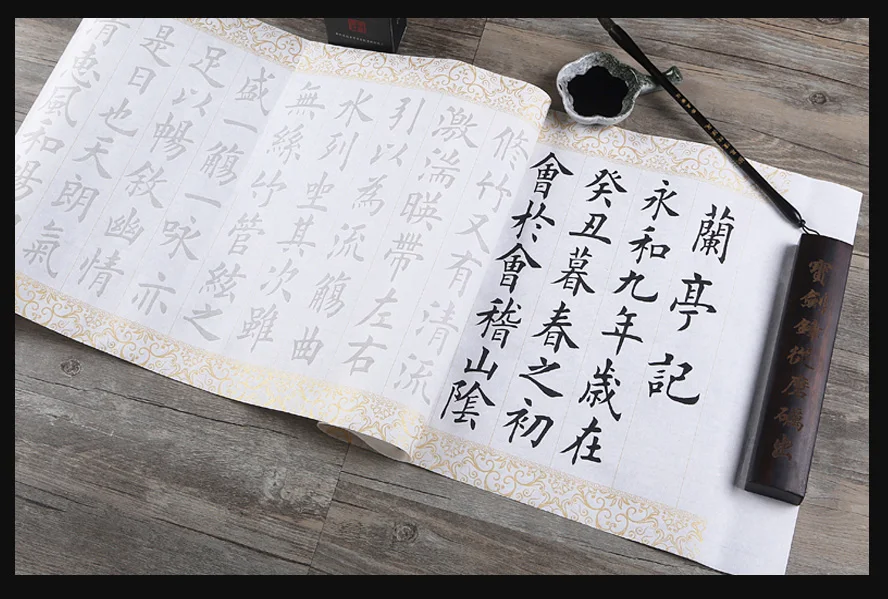 寶劍鋒從磨礪出
蘭亭記
永和九年歲在
癸丑暮春之初
會於會稽山陰
修竹又有清流
激湍暎帶左右
引以為流觴曲
水列坐其次雖
無絲竹管絃之
盛一觴一咏亦
足以暢敘幽情
是日也天朗氣
惠風和暢